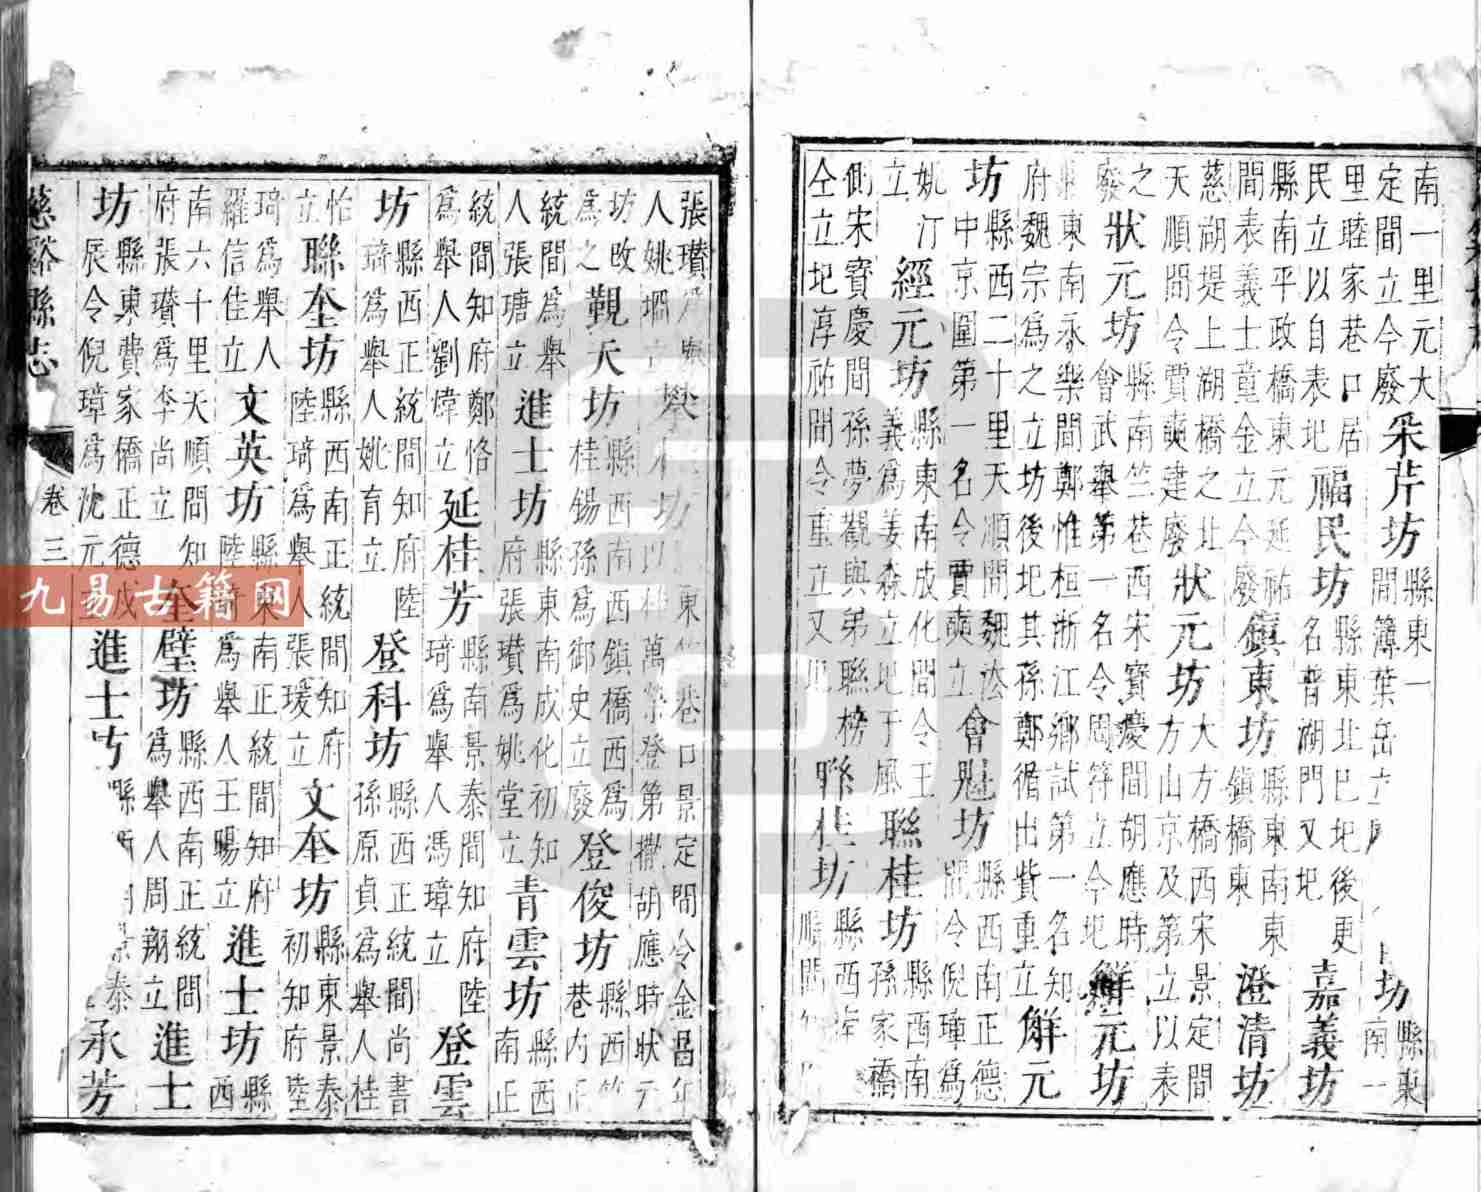 南一里元大定間立今廢采芹坊縣東一間簿葉岳立坊縣東南一
里睦家巷口居民立以自表圮福民坊縣東北巳圮後更名普湖門又圮嘉義坊
縣南平政橋東元延祐間表義士童金立今廢鎮東坊縣東南東鎮橋東澄清坊
慈湖堤上湖橋之北天順間令賈奭建廢狀元坊大方橋西宋景定間方山京及第立以表
之廢狀元坊縣南竺巷西宋寶慶間胡應時會武舉第一名令周符立今圮解元坊
縣東南永樂間鄭惟桓浙江鄉試第一名知府魏宗為之立坊後圮其孫鄭循出貲重立解元
坊縣西二十里天順間魏中京闈第一名令賈奭立會魁坊縣西南正德間令倪瑋為
姚汀立經元坊縣東南成化間令王義為姜森立圮于風聯桂坊縣西南孫家橋
側宋寶慶間孫夢觀與弟聯榜仝立圮淳祐間令重立又圮聯桂坊縣西順間
張瓚為舉人姚堈立攀桂坊東竺巷口景定間令金昌年以桂萬榮登第撒胡應時狀元
坊改為之覲天坊縣西南西鎮橋西為桂錫孫為御史立廢登俊坊縣西竺巷內正
統間為舉人張瑭立進士坊縣東南成化初知府張瓚為姚堂立青雲坊縣西南正
統間知府鄭恪為舉人劉煒立延桂芳縣南景泰間知府陸琦為舉人馮璋立登雲
坊縣西正統間知府陸琦為舉人姚育立登科坊縣西正統間尚書孫原貞為舉人桂
怡立聯奎坊縣西南正統間知府陸琦為舉人張瑗立文奎坊縣東景泰初知府陸
琦為舉人羅信佳立文英坊縣東南正統間知府陸琦為舉人王暘立進士坊縣西
南六十里天順間知府張瓚為李尚立奎璧坊縣西南正統間為舉人周翔立進士
坊縣東費家橋正德戊辰令倪璋為沈元進士坊縣西景泰承芳
慈谿縣志 卷三
九易古籍网